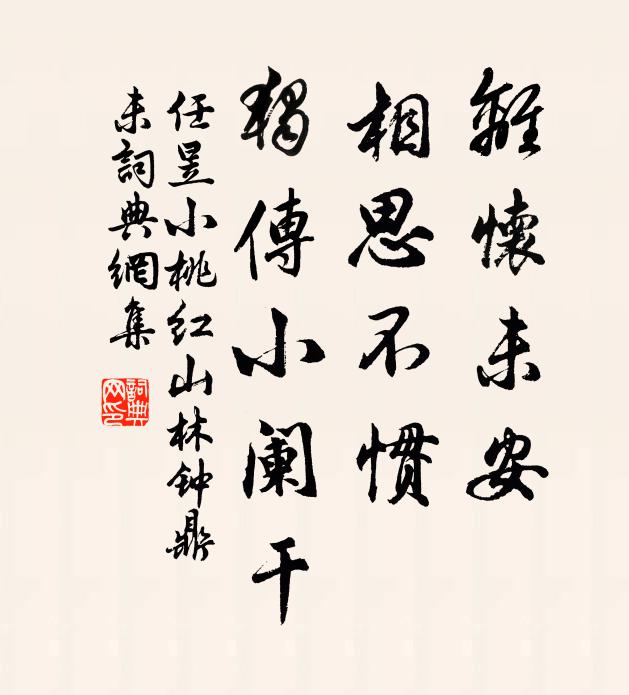 離懷未安
相思不慣
獨傳小闌干
任昱小桃紅山林鈡鼎
未詞典網集
詞典网印